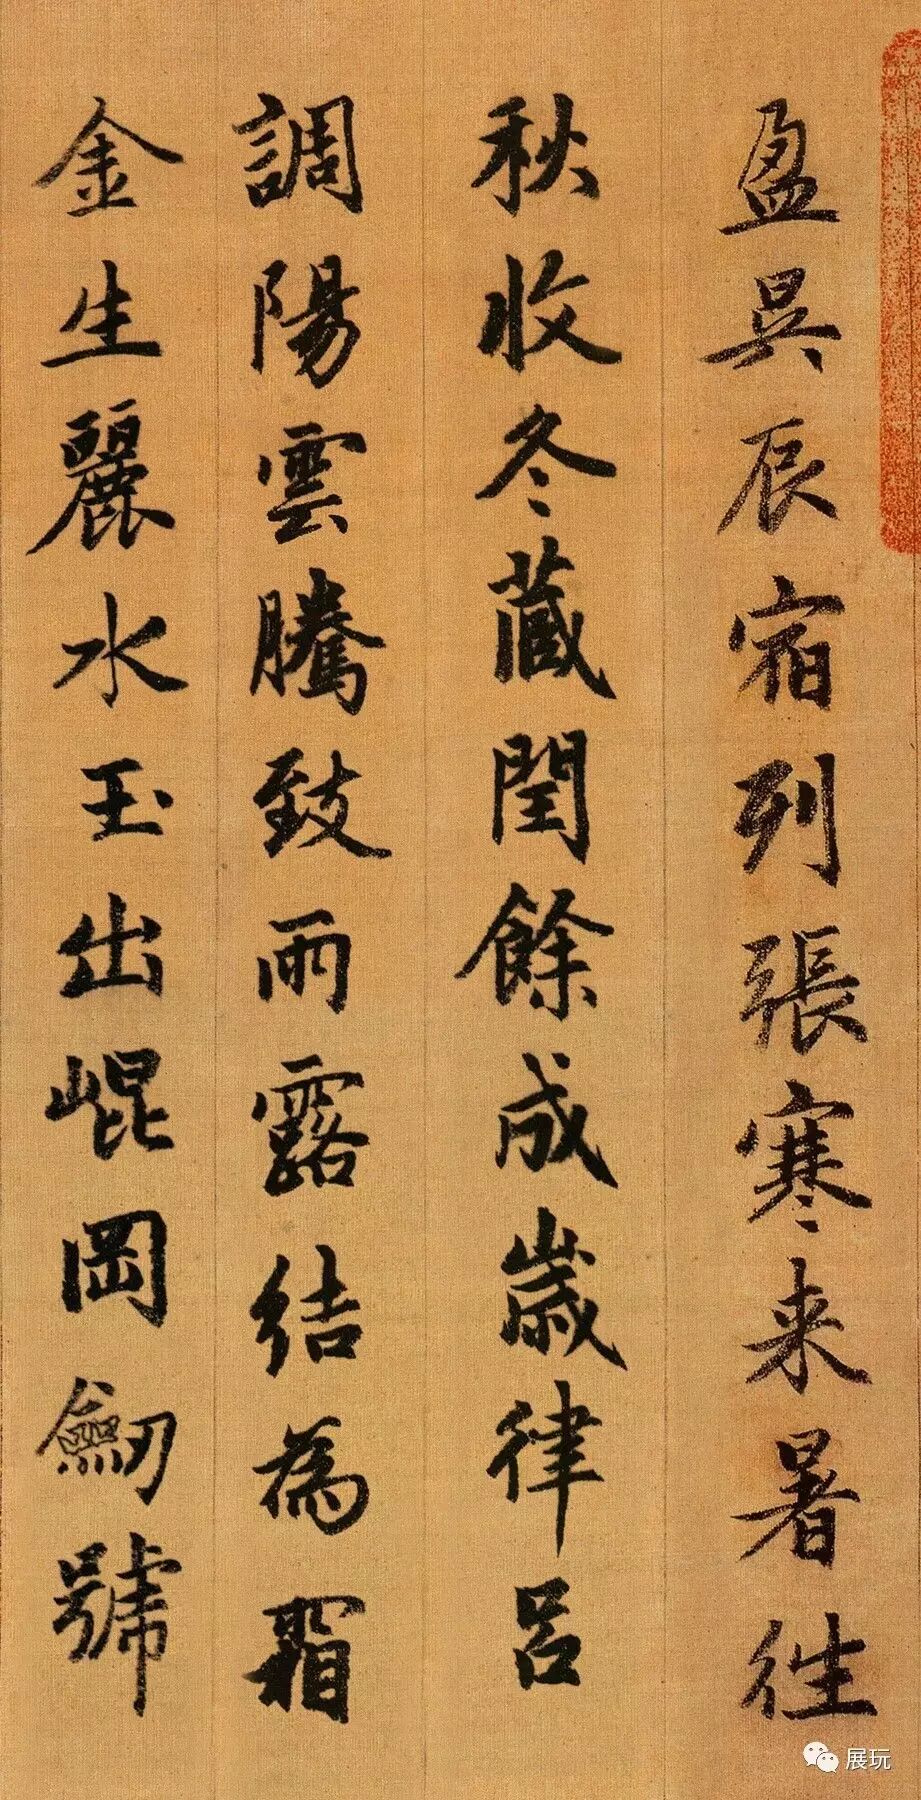 盈昃辰宿列張寒来暑往
秋收冬藏閏餘成歲律呂
調陽雲騰致雨露結為霜
金生麗水玉出崐岡劒號
展玩